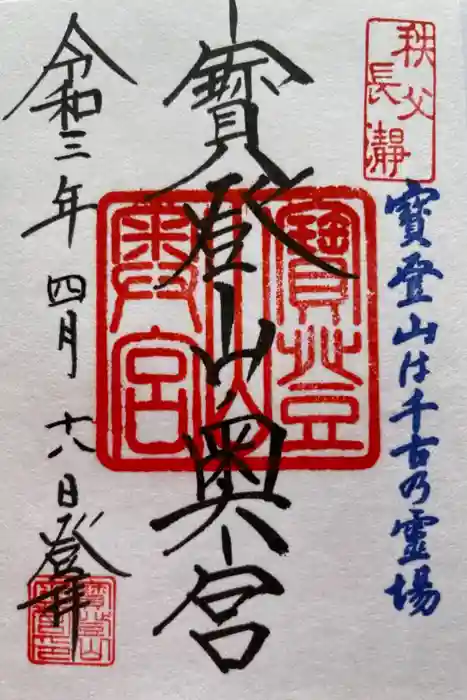 秩父
長瀞
寳登山は千古乃霊場
寳登山奥宮
寳登山
奥宮
令和三年四月十八日登拝
寳登山